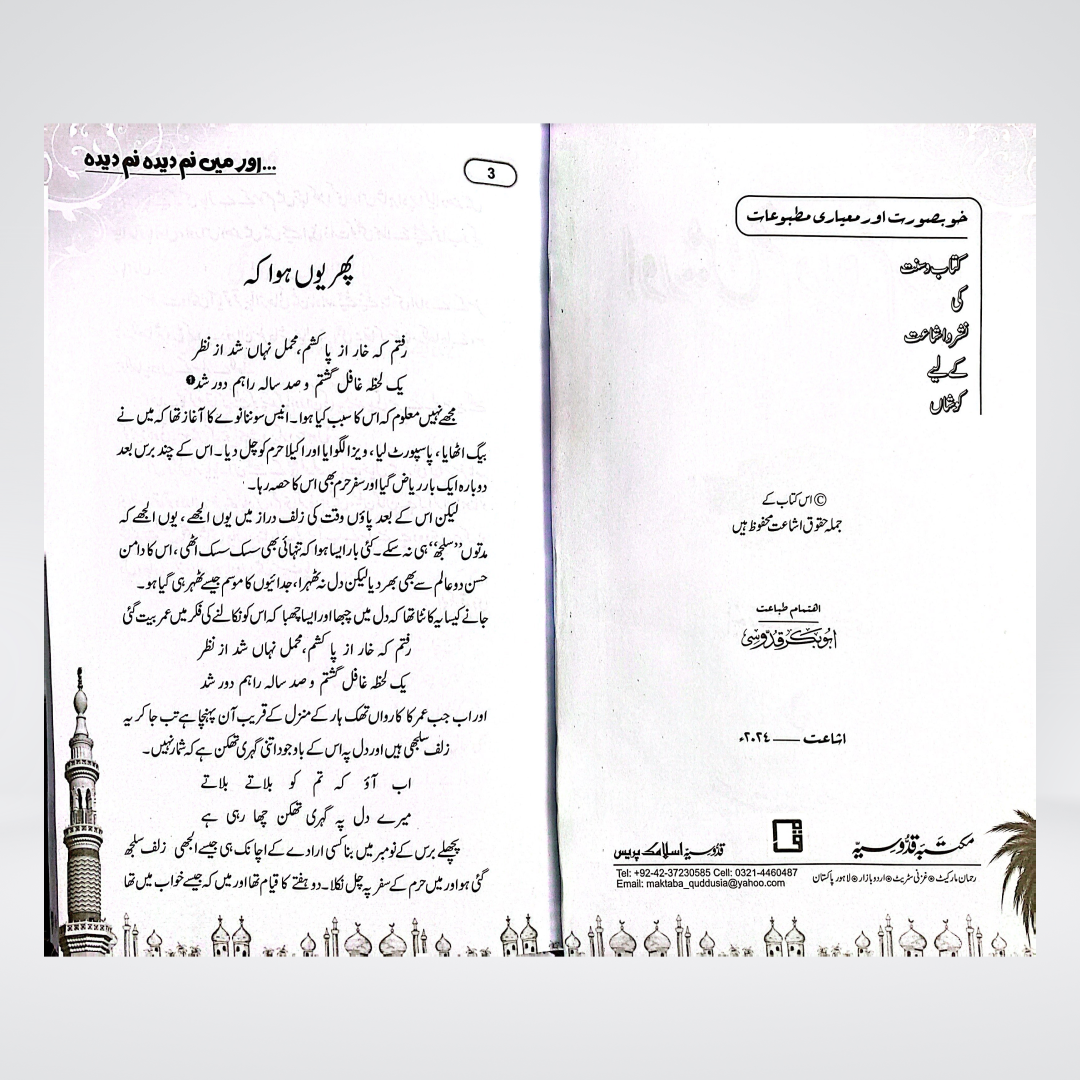 خوبصورت اور معیاری مطبوعات
کتاب وسنت
کی
نشرواشاعت
کے لیے
کوشاں
© اس کتاب کے
جملہ حقوق اشاعت محفوظ ہیں
اھتمام طباعت
ابوبکر قدوسی
اشاعت —— ۲۰۲۴ء
مکتبہ قدوسیہ
قدوسیہ اسلامک پریس
رحمان مارکیٹ ⊙ غزنی سٹریٹ ⊙ اردو بازار ⊙ لاہور پاکستان
Tel: +92-42-37230585 Cell: 0321-4460487
Email: maktaba_quddusia@yahoo.com
...اور میں نم دیدہ نم دیدہ
3
پھر یوں ہوا کہ
رفتم کہ خار از پا کشم، محمل نہاں شد از نظر
یک لحظہ غافل گشتم و صد سالہ راہم دور شد❶
مجھے نہیں معلوم کہ اس کا سبب کیا ہوا۔ انیس سو ننانوے کا آغاز تھا کہ میں نے
بیگ اٹھایا، پاسپورٹ لیا، ویزا لگوایا اور اکیلا حرم کو چل دیا۔ اس کے چند برس بعد
دوبارہ ایک بار ریاض گیا اور سفر حرم بھی اس کا حصہ رہا۔
لیکن اس کے بعد پاؤں وقت کی زلف دراز میں یوں الجھے، یوں الجھے کہ
مدتوں ’’سلجھ‘‘ ہی نہ سکے۔ کئی بار ایسا ہوا کہ تنہائی بھی سسک سسک اٹھی، اس کا دامن
حسن دو عالم سے بھی بھر دیا لیکن دل نہ ٹھہرا، جدائیوں کا موسم جیسے ٹھہر ہی گیا ہو۔
جانے کیسا یہ کانٹا تھا کہ دل میں چبھا اور ایسا چبھا کہ اس کو نکالنے کی فکر میں عمر بیت گئی
رفتم کہ خار از پا کشم، محمل نہاں شد از نظر
یک لحظہ غافل گشتم و صد سالہ راہم دور شد
اور اب جب عمر کا کارواں تھک ہار کے منزل کے قریب آن پہنچا ہے تب جا کر یہ
زلف سلجھی ہیں اور دل پہ اس کے باوجود اتنی گہری تھکن ہے کہ شمار نہیں۔
اب آؤ کہ تم کو بلاتے بلاتے
میرے دل پہ گہری تھکن چھا رہی ہے
پچھلے برس کے نومبر میں بنا کسی ارادے کے اچانک ہی جیسے الجھی زلف سلجھ
گئی ہو اور میں حرم کے سفر پہ چل نکلا۔ دو ہفتے کا قیام تھا اور میں کہ جیسے خواب میں تھا